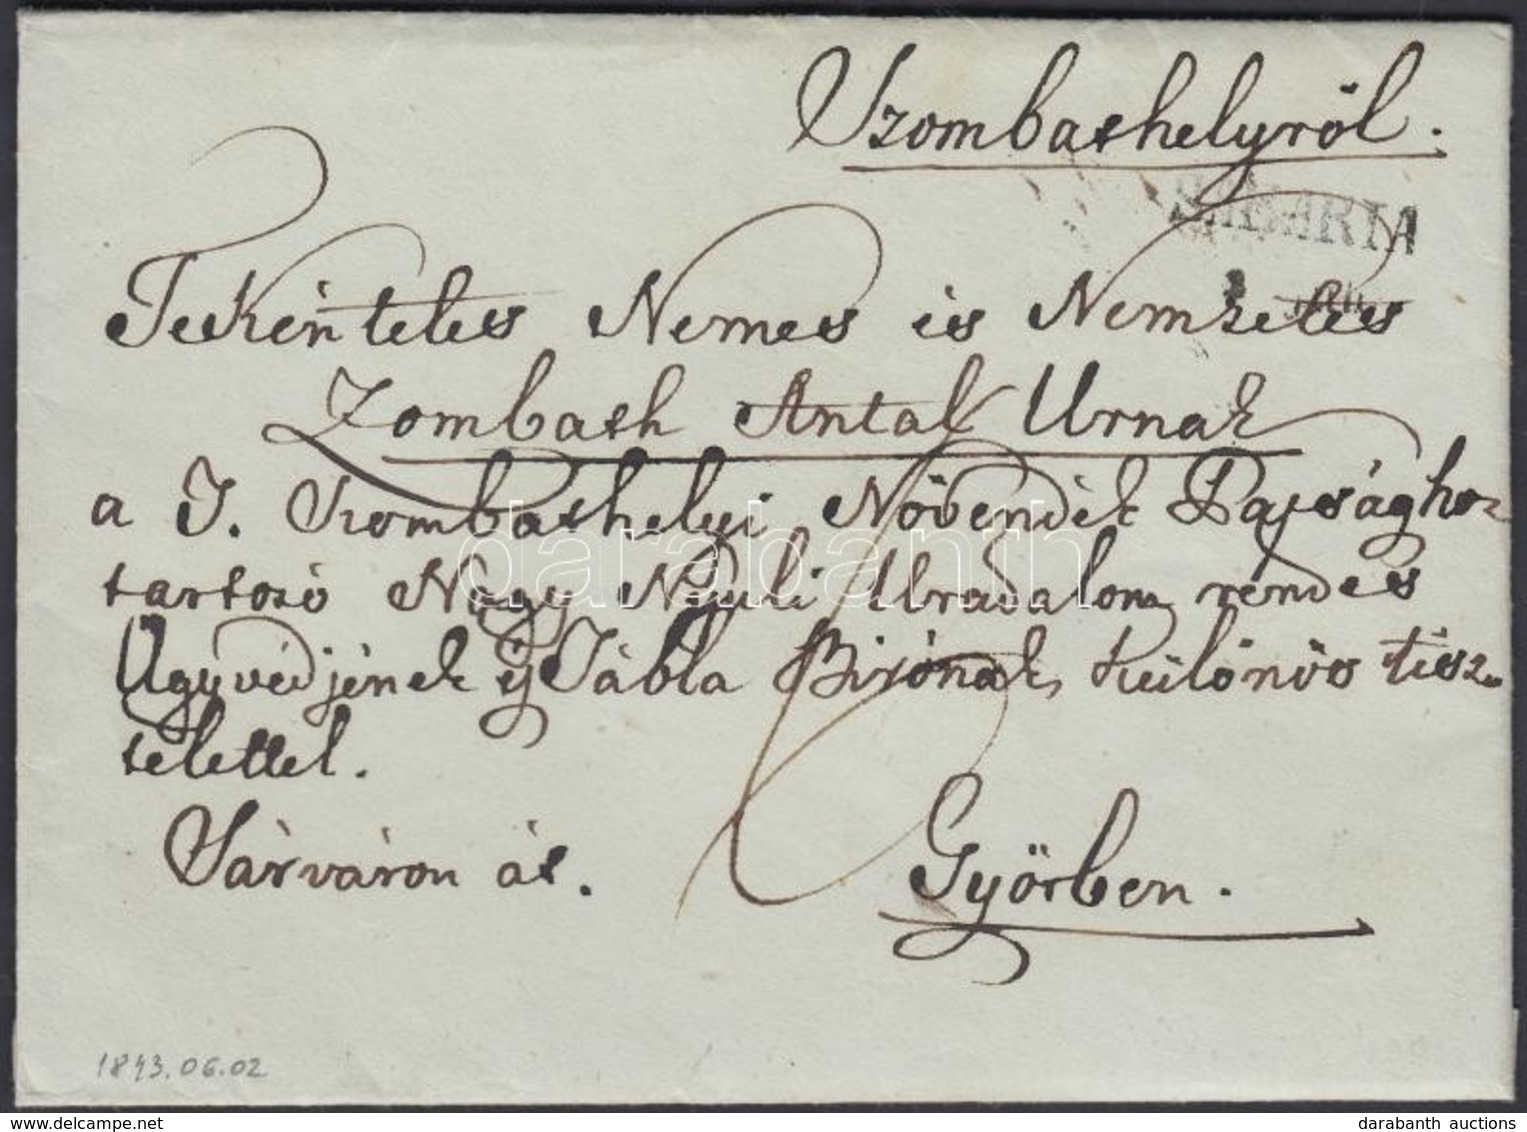 Szombathelyről.
SABARIA
Tekéntetes Nemes és Nemzetes
Zombath Antal Urnak
a T. Szombathelyi Növendék Papsághoz
tartozó Nagy Nyuli Uradalom rendes
Ügyvédjének és Tábla Birónak, külonös tisz-
telettel.
Sárváron át. Györben.
1843.06.02
darabanth
darabanth auctions